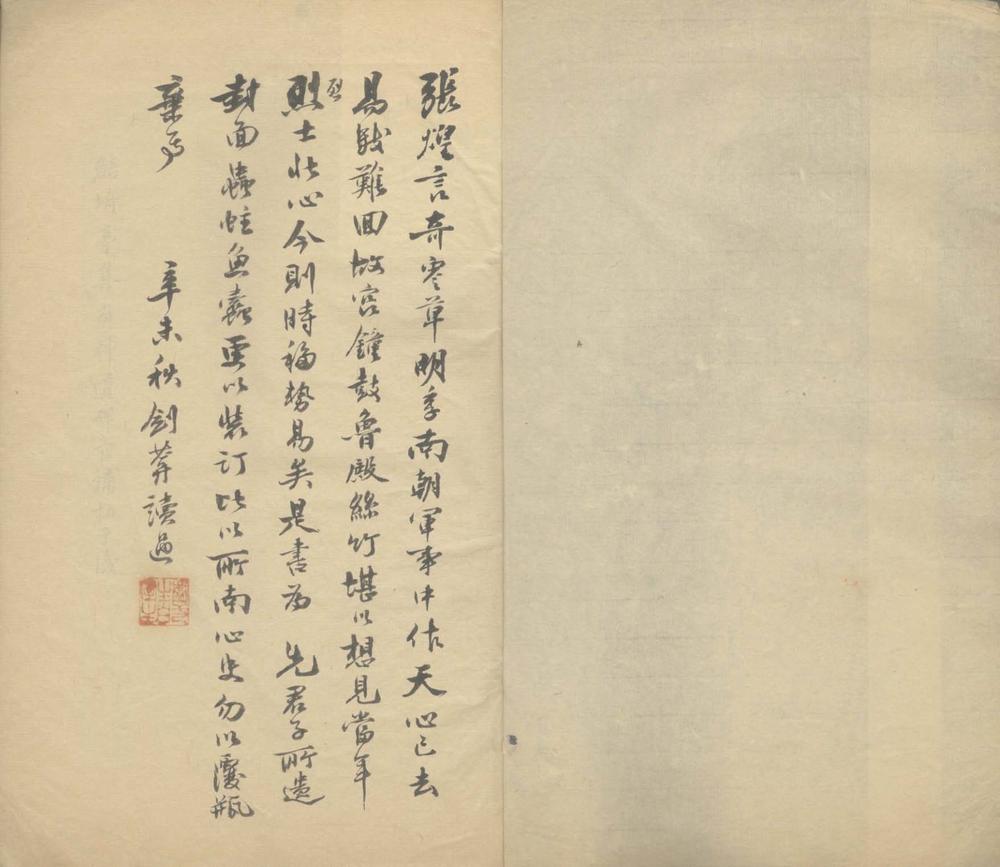 張煌言奇零草明季南朝軍事中作天心已去
易骸難回故宮鐘鼓魯殿絲竹堪以想見當年
烈士壯心今則時移勢易矣是書為 先君子所遺
封面蟲蛀魚蠹重以裝訂比以所南心史勿以覆瓿
棄焉 辛未秋劍莽讀過